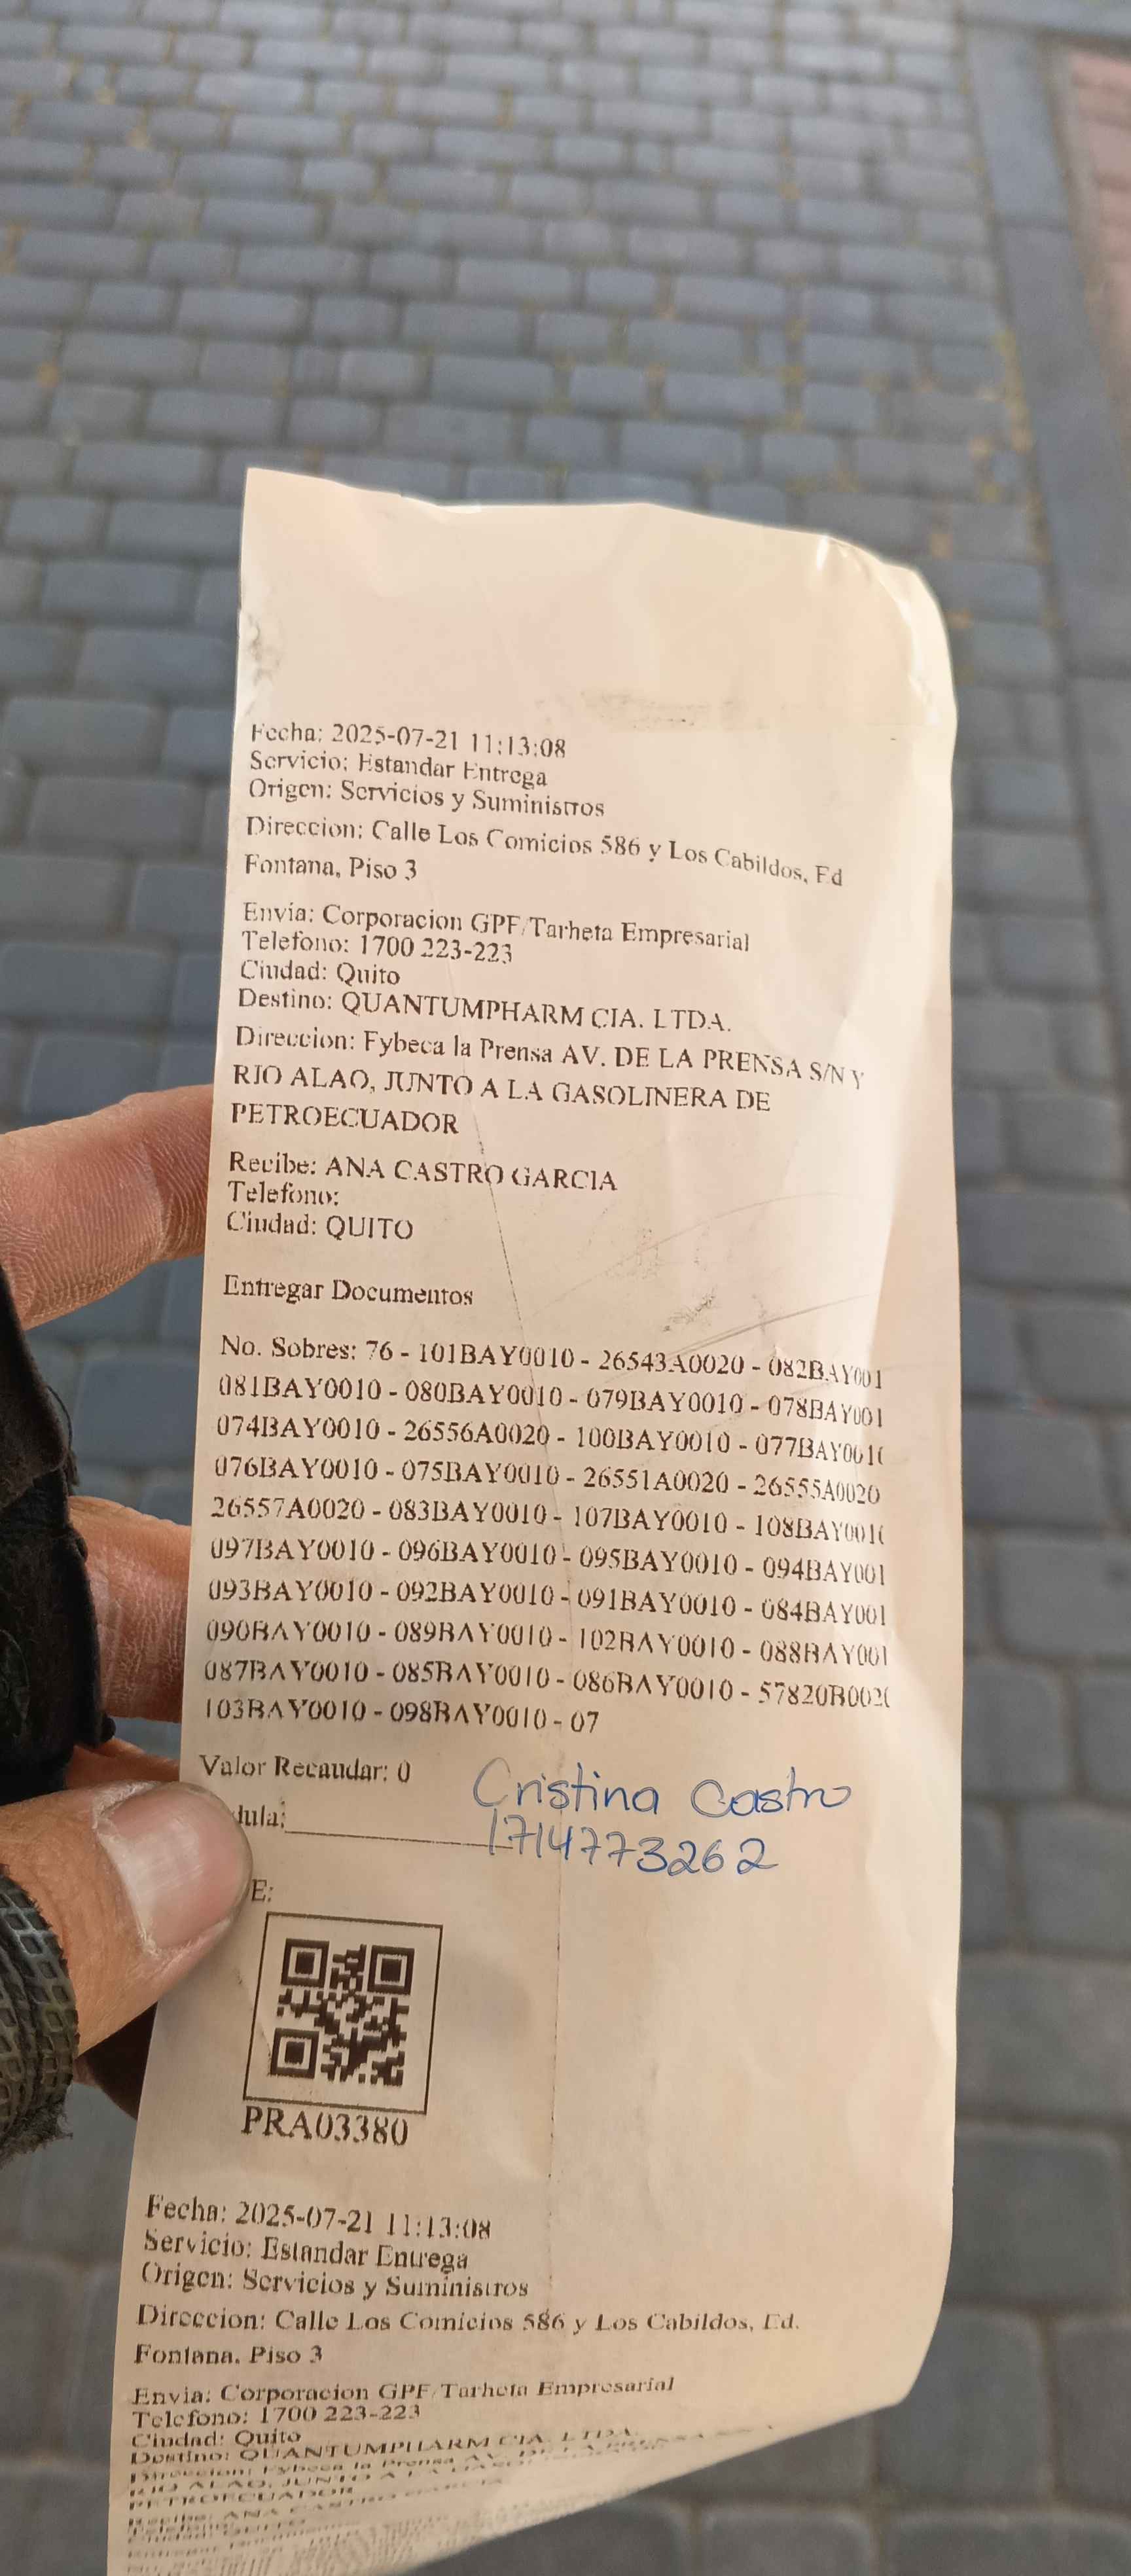 Fecha: 2025-07-21 11:13:08
Servicio: Estandar Entrega
Origen: Servicios y Suministros
Direccion: Calle Los Comicios 586 y Los Cabildos, Ed
Fontana, Piso 3
Envia: Corporacion GPF/Tarheta Empresarial
Telefono: 1700 223-223
Ciudad: Quito
Destino: QUANTUMPHARM CIA. LTDA.
Direccion: Fybeca la Prensa AV. DE LA PRENSA S/N Y
RIO ALAO, JUNTO A LA GASOLINERA DE
PETROECUADOR
Recibe: ANA CASTRO GARCIA
Telefono:
Ciudad: QUITO
Entregar Documentos
No. Sobres: 76 - 101BAY0010 - 26543A0020 - 082BAY001
081BAY0010 - 080BAY0010 - 079BAY0010 - 078BAY001
074BAY0010 - 26556A0020 - 100BAY0010 - 077BAY001
076BAY0010 - 075BAY0010 - 26551A0020 - 26555A0020
26557A0020 - 083BAY0010 - 107BAY0010 - 108BAY001
097BAY0010 - 096BAY0010 - 095BAY0010 - 094BAY001
093BAY0010 - 092BAY0010 - 091BAY0010 - 084BAY001
090BAY0010 - 089BAY0010 - 102BAY0010 - 088BAY001
087BAY0010 - 085BAY0010 - 086BAY0010 - 57820B002
103BAY0010 - 098BAY0010 - 07
Valor Recaudar: 0
Cristina Castro
dula:
1714773262
E:
PRA03380
Fecha: 2025-07-21 11:13:08
Servicio: Estandar Entrega
Origen: Servicios y Suministros
Direccion: Calle Los Comicios 586 y Los Cabildos, Ed.
Fontana, Piso 3
Envia: Corporacion GPF/Tarheta Empresarial
Telefono: 1700 223-223
Ciudad: Quito
Destino: QUANTUMPHARM CIA. LTDA.
Direccion: Fybeca la Prensa AV. DE LA PRENSA
RIO ALAO, JUNTO A LA
PETROECUADOR
Recibe: ANA CASTRO GARCIA